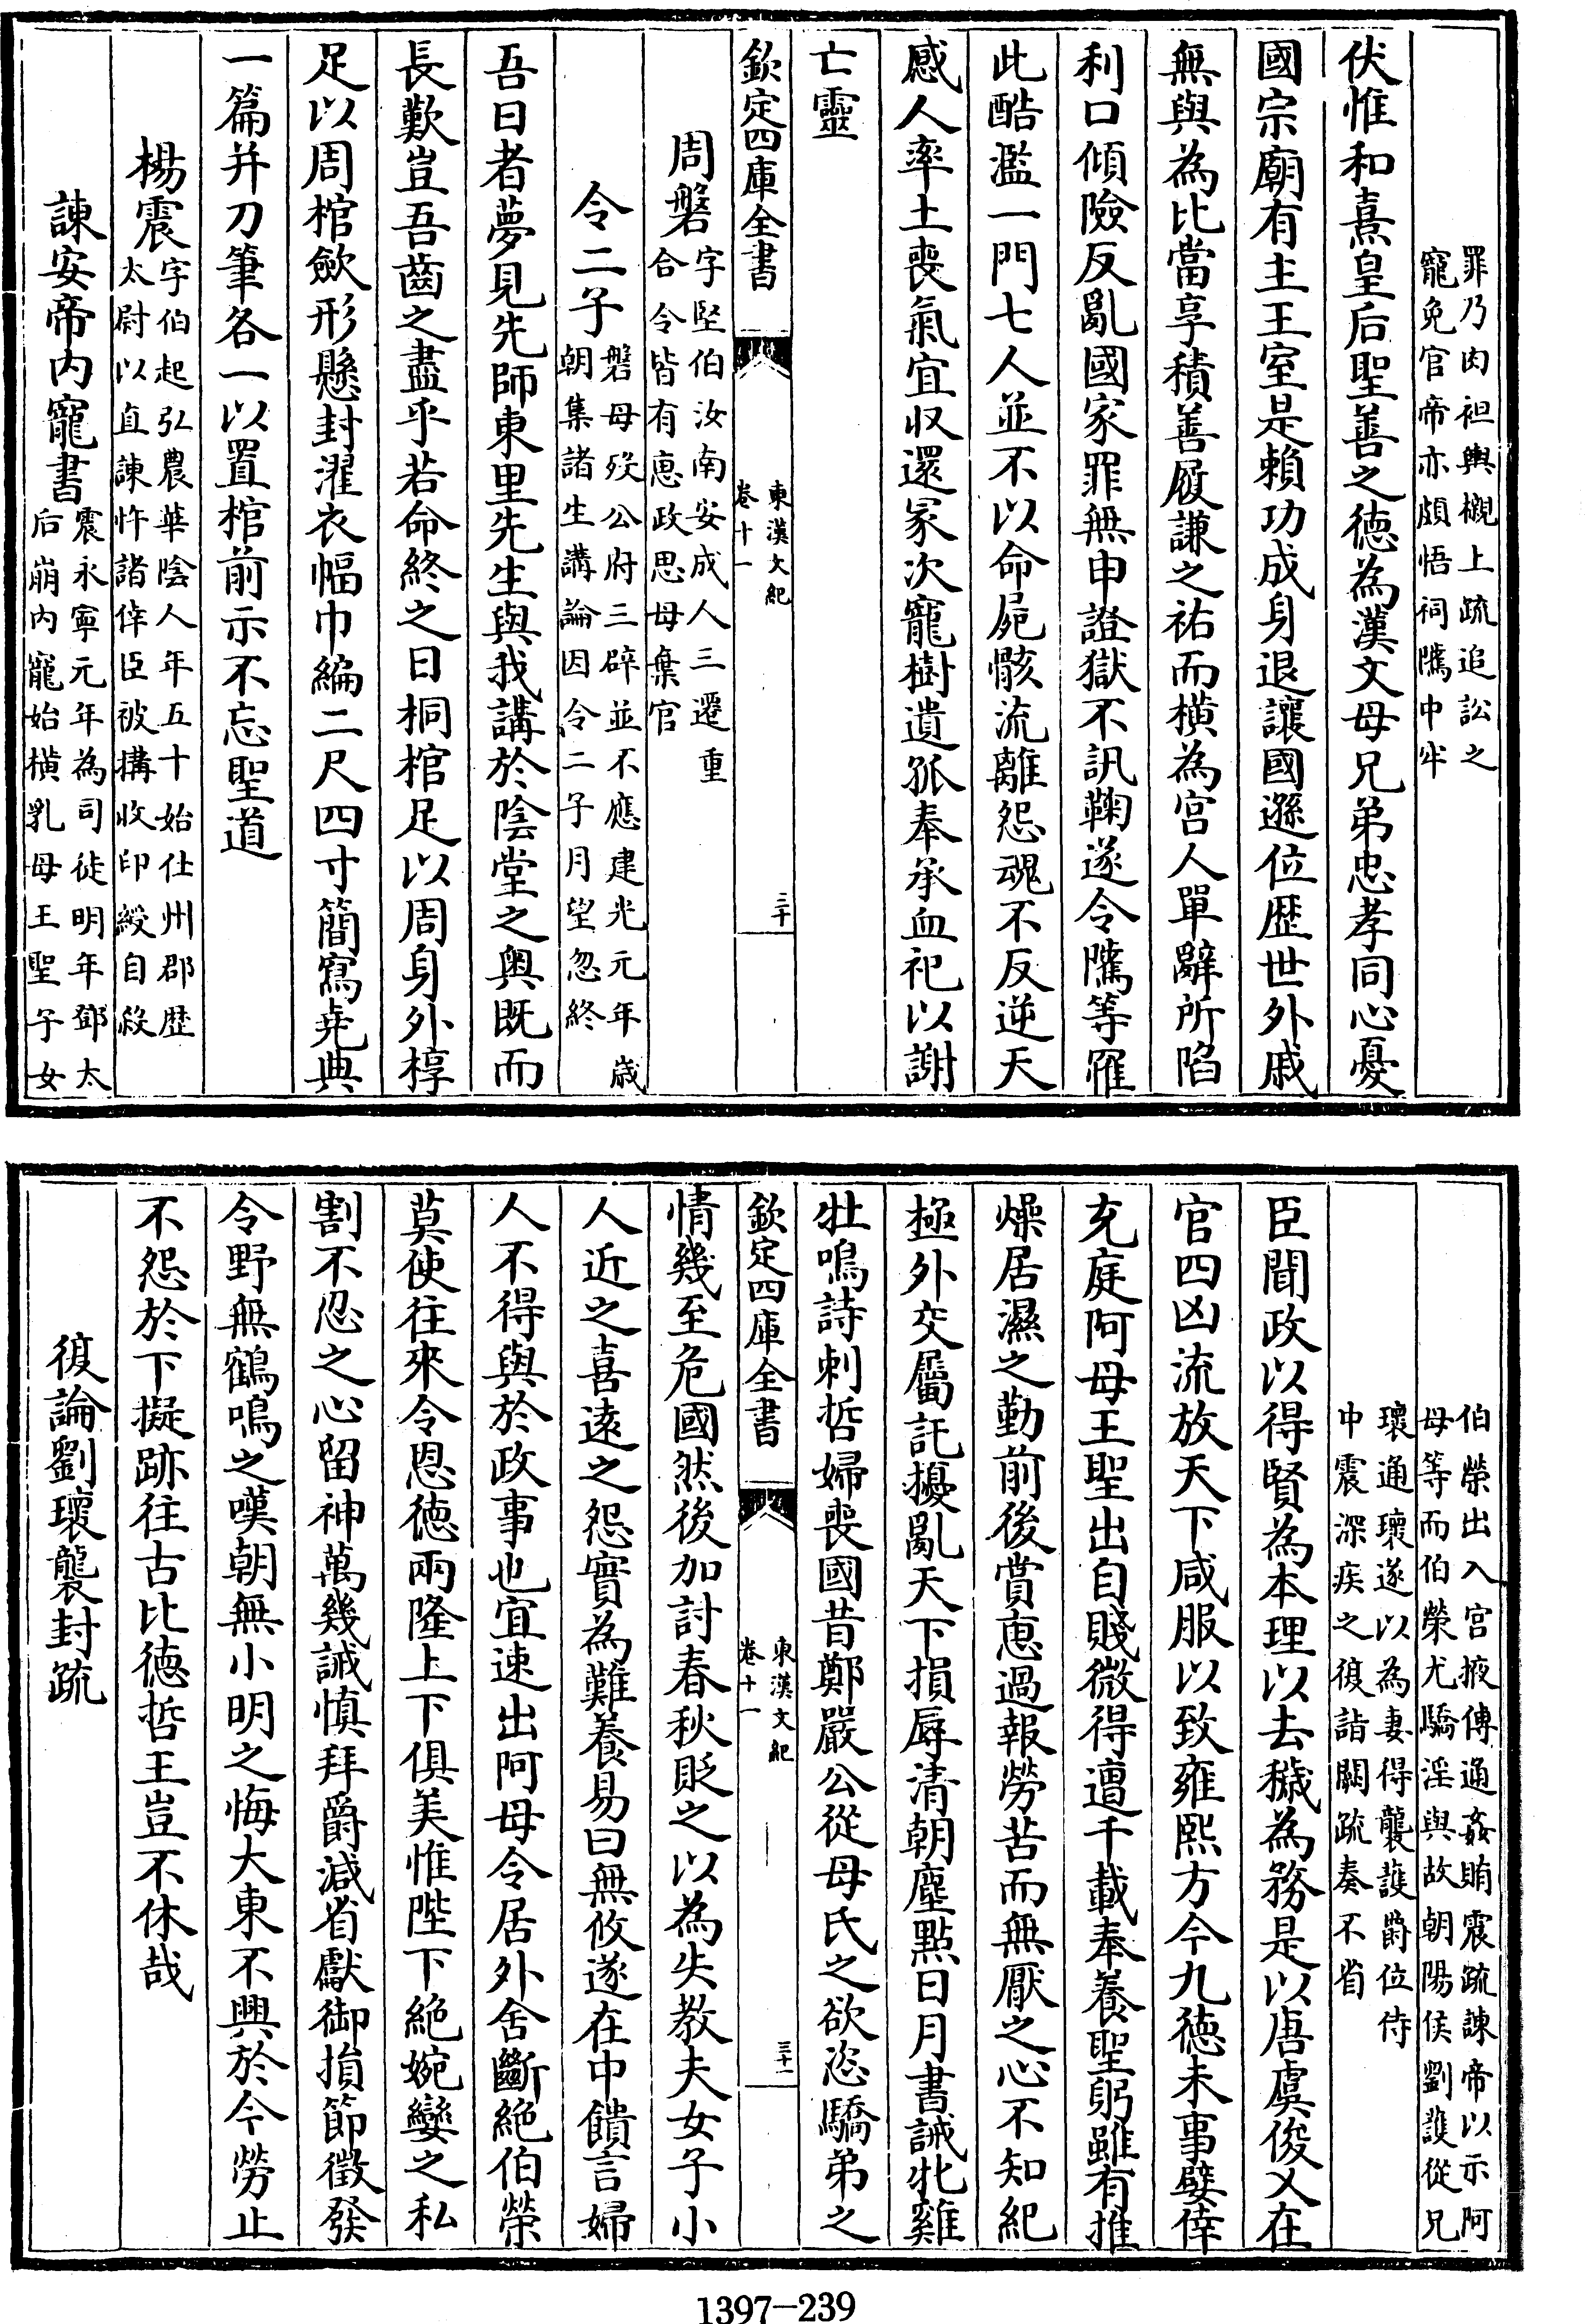 罪乃肉袒輿櫬上疏追訟之
寵免官帝亦頗悟祠隲中牢
伏惟和熹皇后聖善之徳為漢文母兄弟忠孝同心憂
國宗廟有主王室是賴功成身退讓國遜位歴世外戚
無與為比當享積善履謙之祐而横為宫人單辭所陷
利口傾險反亂國家罪無申證獄不訊鞠遂令隲等罹
此酷濫一門七人並不以命屍骸流離怨魂不反逆天
感人率土喪氣宜収還冡次寵樹遺孤奉承血祀以謝
亡靈
欽定四庫全書
東漢文紀
卷十一
三十
周磐
字堅伯汝南安成人三遷重
合令皆有恵政思母棄官
令二子
磐母歿公府三辟並不應建光元年歳
朝集諸生講論因令二子月望忽終
吾日者夢見先師東里先生與我講於陰堂之奥既而
長歎豈吾齒之盡乎若命終之日桐棺足以周身外椁
足以周棺斂形懸封濯衣幅巾編二尺四寸簡寫堯典
一篇并刀筆各一以置棺前示不忘聖道
楊震
字伯起弘農華陰人年五十始仕州郡歴
太尉以直諫忤諸倖臣被搆收印綬自殺
諫安帝内寵書
震永寧元年為司徒明年鄧太
后崩内寵始横乳母王聖子女
伯榮出入宫掖傳通姦賄震疏諫帝以示阿
母等而伯榮尤驕淫與故朝陽侯劉護從兄
瓌通瓌遂以為妻得襲護爵位侍
中震深疾之復詣闕疏奏不省
臣聞政以得賢為本理以去穢為務是以唐虞俊乂在
官四凶流放天下咸服以致雍熙方今九徳未事嬖倖
充庭阿母王聖出自賤微得遭千載奉養聖躬雖有推
燥居濕之勤前後賞恵過報勞苦而無厭之心不知紀
極外交屬託擾亂天下損辱清朝塵點日月書誡牝雞
牡鳴詩刺哲婦喪國昔鄭嚴公從母氏之欲恣驕弟之
欽定四庫全書
東漢文紀
卷十一
三十一
情幾至危國然後加討春秋貶之以為失教夫女子小
人近之喜遠之怨實為難養易曰無攸遂在中饋言婦
人不得與於政事也宜速出阿母令居外舍斷絶伯榮
莫使往來令恩徳兩隆上下俱美惟陛下絶婉孌之私
割不忍之心留神萬幾誡慎拜爵減省獻御損節徵發
令野無鶴鳴之嘆朝無小明之悔大東不興於今勞止
不怨於下擬跡往古比徳哲王豈不休哉
復論劉瓌襲封疏
1397—239